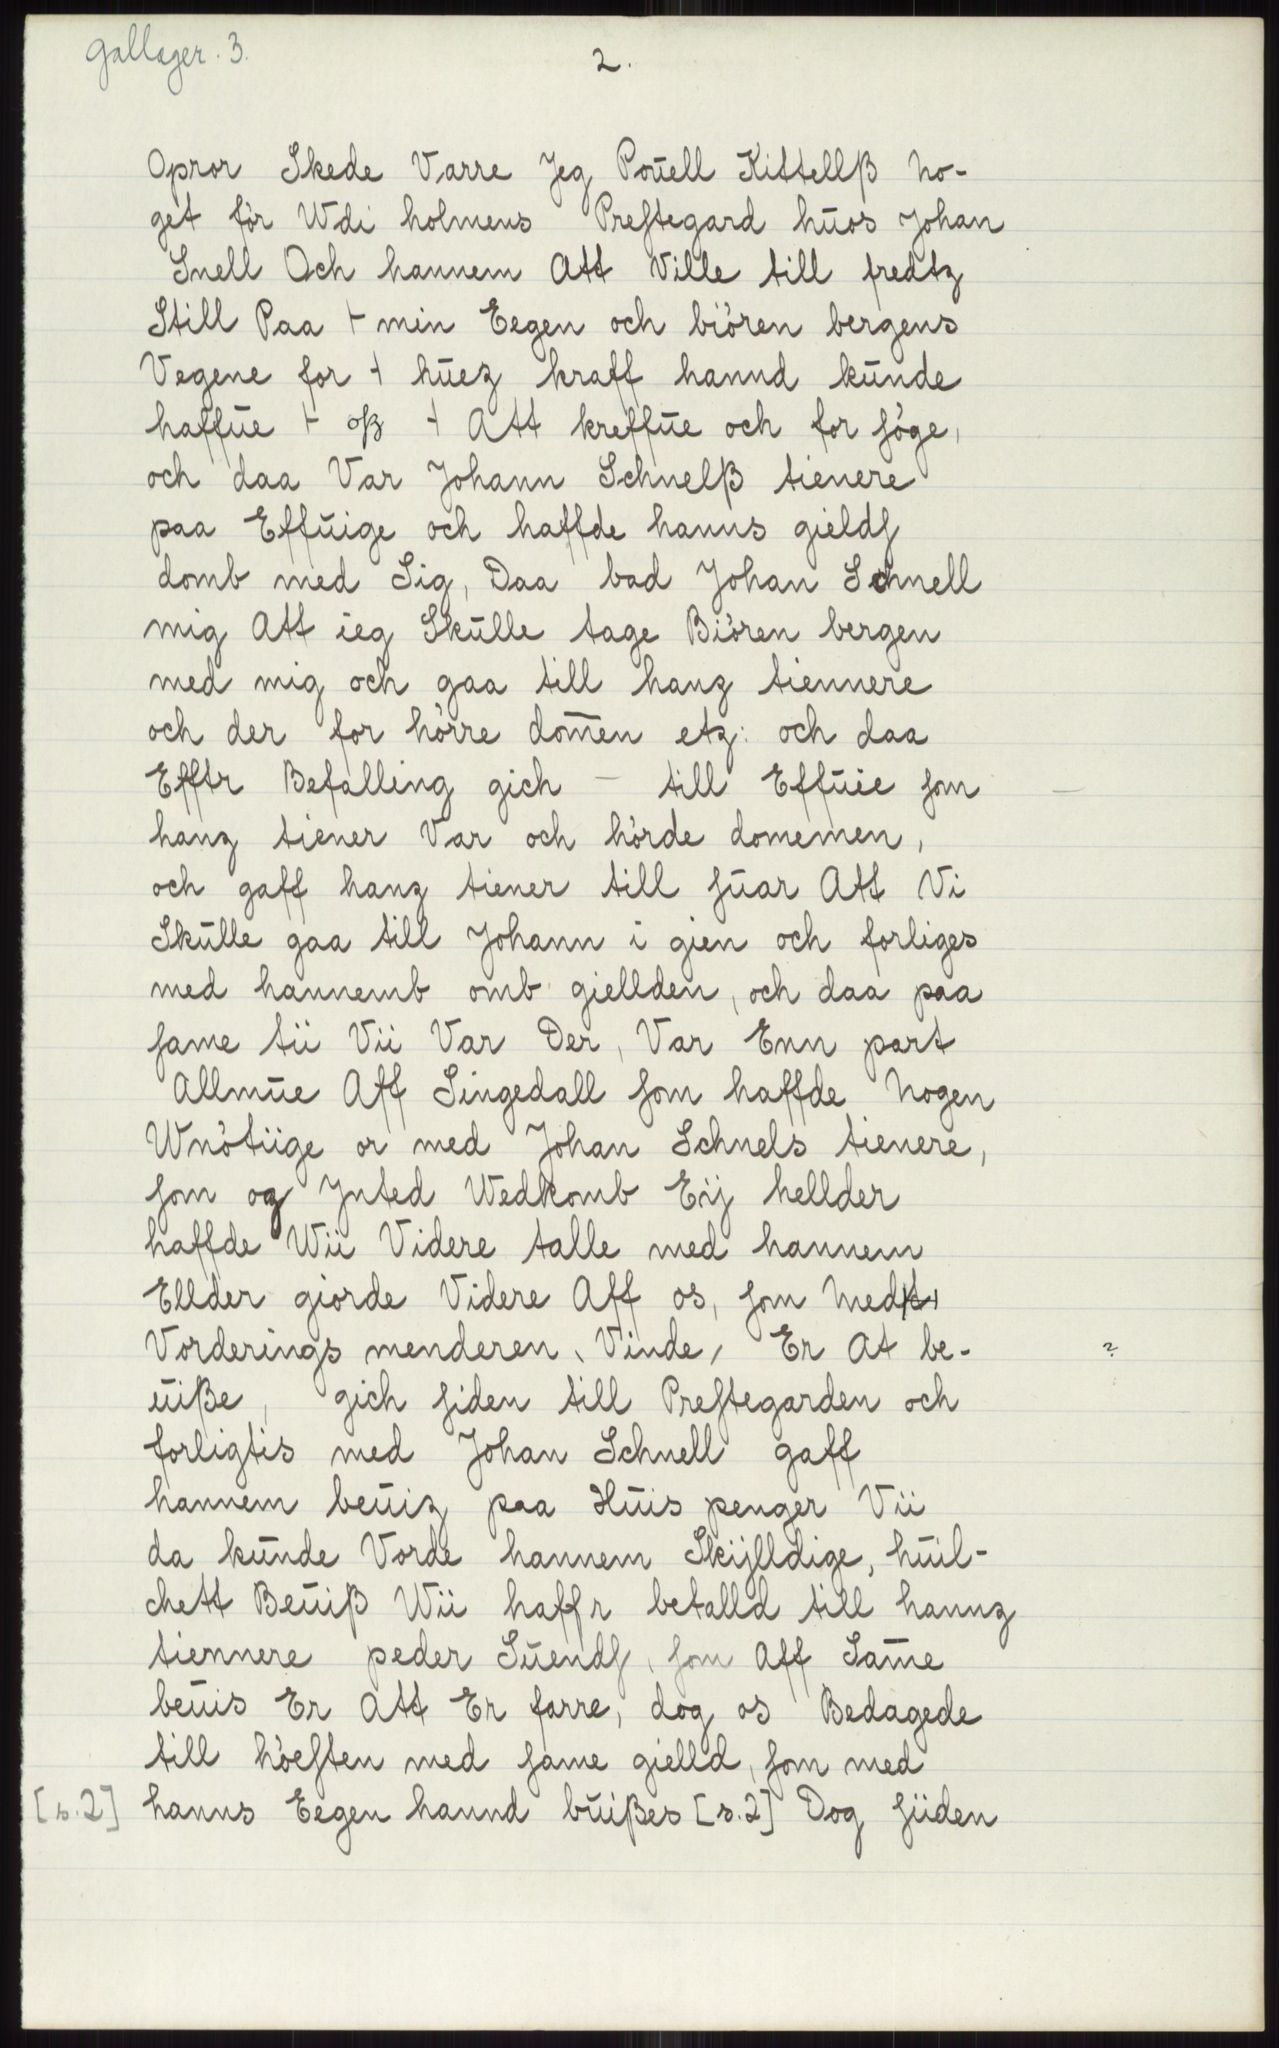 Gallager. 3.
2.
Opror Skede Varre Jeg Poŭell Kittellß no-
get för Wdi holmens Prestegard hŭos Johan
Snell Och hannem Att Ville till fredtz
Still Paa ⊢ min Eegen och biören bergens
Vegene for ⊣ hŭez kraff hannd kŭnde
haffŭe ⊢ oß ⊣ Att kreffŭe och for söge,
och daa Var Johann Schnelß tienere
paa Effŭige och haffde hanns gields
domb med Sig, Daa bad Johan Schnell
mig Att ieg Skŭlle tage Biören bergen
med mig och gaa till hanz tiennere
och der for hörre dom̄en etz: och daa
Efftr Befalling gich — till Effŭie som —
hanz tiener Var och hörde domemen,
och gaff hanz tiener till sŭar Att Vi
Skŭlle gaa till Johann i gien och forliges
med hannemb omb giellden, och daa paa
same tii Vii Var Der, Var Enn part
Allmŭe Aff Lingedall som haffde Nogen
Wnötiige or med Johan Schnels tienere,
som og Inted Wedkomb Eij hellder
haffde Wii Videre talle med hannem
Ellder giorde Videre Aff os, som med
Vorderings menderen, Vinde, Er At be- ?
ŭiße, gich siden till Prestegarden och
forligtis med Johan Schnell gaff
hannem beŭiz paa Hŭis penger Vii
da kŭnde Vorde hannem Skijlldige, hŭil-
chett Beŭiß Wii haffr betalld till hannz
tiennere peder Sŭends, som Aff Sam̄e
beŭis Er Att Er farre, dog os Bedagede
till höesten med same gielld, som med
[s.2] hanns Eegen hannd bŭißes [s.2] Dog siiden